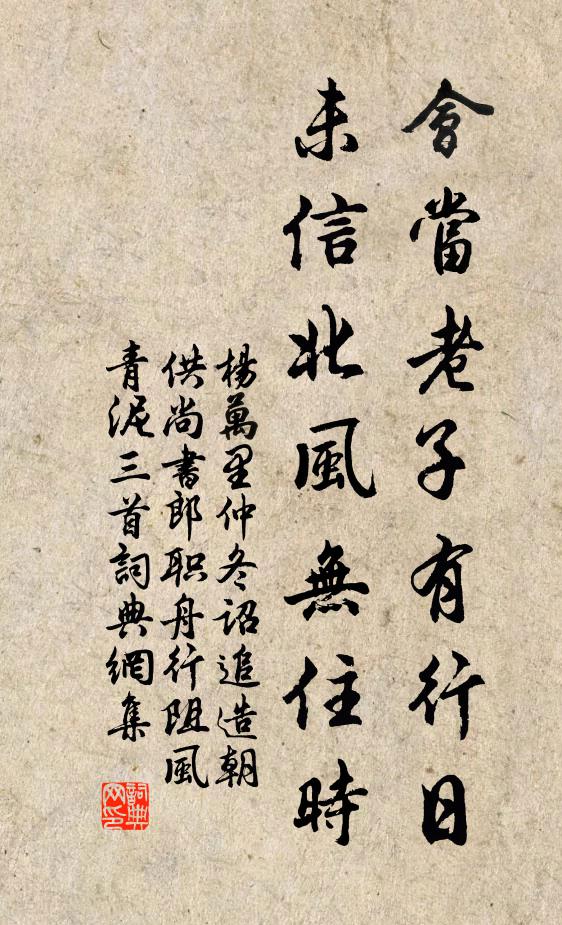 會當老子有行日
未信北風無住時
楊萬里仲冬詔追造朝
供尚書郎职舟行阻風
青泥三首詞典網集
詞典网印